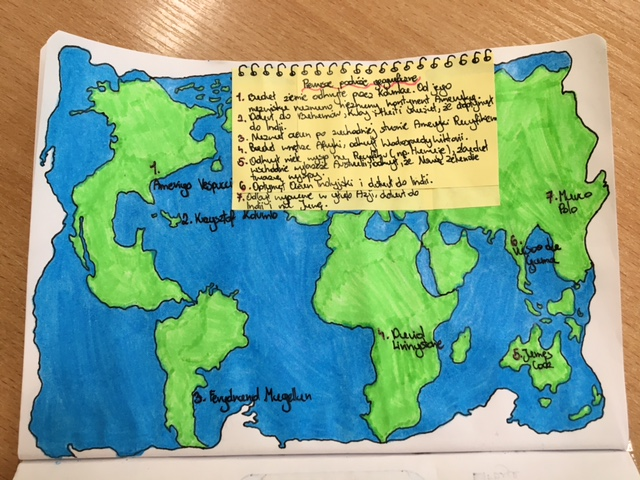 Pierwsze podróże geograficzne
1. Badał ziemie odkryte przez Kolumba. Od jego
nazwiska nazwano nieznany kontynent Ameryką
2. Dotarł do Bahamów, Kuby i Haiti myślał, że dopłynął
do Indii.
3. Nazwał ocean po zachodniej stronie Ameryki Pacyfikiem
4. Badał wnętrze Afryki, odkrył Wodospady Wiktorii.
5. Odkrył wiele wysp na Pacyfiku (np. Hawaje), zbadał
wschodnie wybrzeże Australii i odkrył, że Nowa Zelandia
tworzą wyspy.
6. Opłynął Ocean Indyjski i dotarł do Indii.
7. Odbył wyprawę w głąb Azji, dotarł do
Indii i na Jawę.
1.
Amerigo Vespucci
2. Krzysztof Kolumb
3. Ferdynand Magellan
4. David
Livingstone
5. James
Cook
6.
Vasco da
Gama
7. Marco
Polo